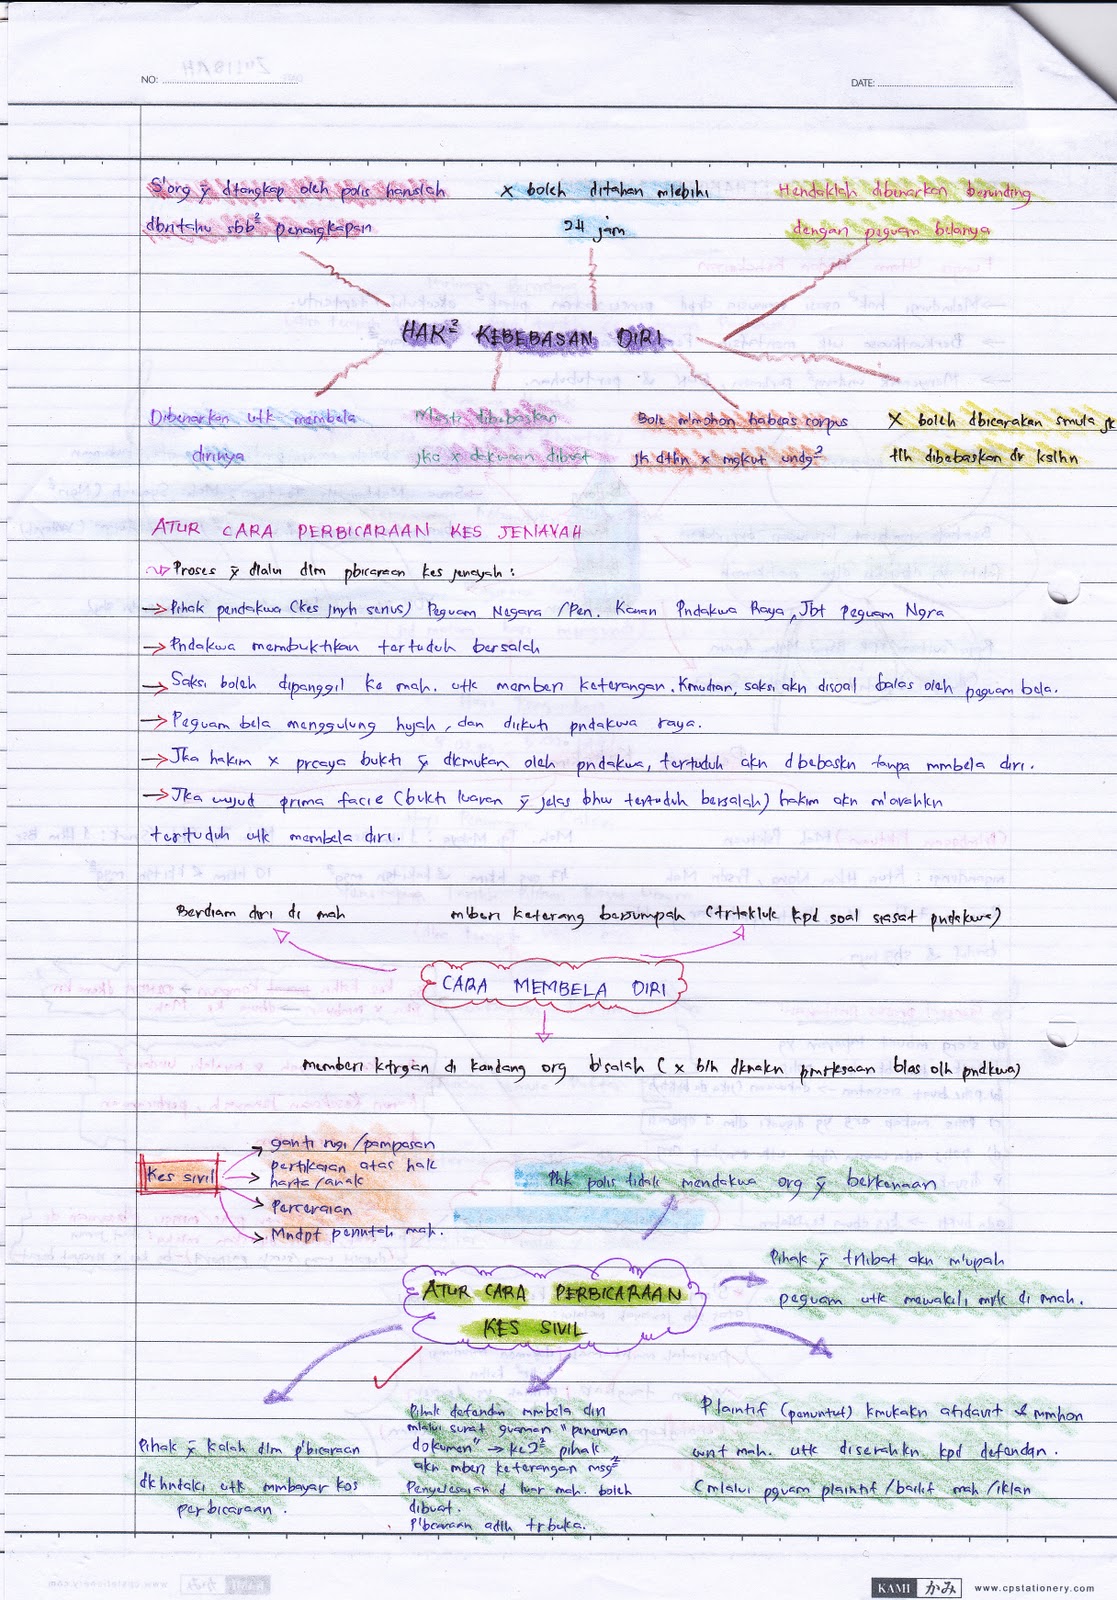 NO:
DATE:
S'org ȳ dtangkap oleh polis hanslah
dbritahu sbb² penangkapan
x boleh ditahan mlebihi
24 jam
Hendaklah dibenarkan berunding
dengan peguam belanya
HAK² KEBEBASAN DIRI
Dibenarkan utk membela
dirinya
Mesti dibebaskan
jka x dakwaan dibuat
Bole m'mohon habeas corpus
jk dthn x mgkut undg²
X boleh dbicarakan smula jk
tlh dibebaskan dr kslhn
ATUR CARA PERBICARAAN KES JENAYAH
Proses ȳ dlalui dlm pbicaraan kes jenayah :
→ Pihak pendakwa (kes jnyh serius) Peguam Negara / Pen. Kanan Pndakwa Raya, Jbt Peguam Ngra
→ Pndakwa membuktikan tertuduh bersalah
→ Saksi boleh dipanggil ke mah. utk memberi keterangan. Kmudian, saksi akn disoal balas oleh peguam bela.
→ Peguam bela menggulung hujah, dan diikuti pndakwa raya.
→ Jka hakim x prcaya bukti ȳ dkmukan oleh pndakwa, tertuduh akn dbebaskn tanpa mmbela diri.
→ Jka wujud prima facie (bukti luaran ȳ jelas bhw tertuduh bersalah) hakim akn m'arahkn
tertuduh utk membela diri.
Berdiam diri di mah
mberi keterang bersumpah (trtakluk kpd soal siasat pndakwa)
CARA MEMBELA DIRI
memberi ktrgan di kandang org b'salah ( x blh dknakn pmrksaan blas olh pndkwa)
Kes sivil
ganti rugi /pampasan
pertikaian atas hak
harta /anak
Perceraian
Mndpt perintah mah.
Phk polis tidak mendakwa org ȳ berkenaan
ATUR CARA PERBICARAAN
KES SIVIL
Pihak ȳ trlibat akn m'upah
peguam utk mewakili mrk di mah.
Pihak ȳ kalah dlm p'bicaraan
dkhndaki utk mmbayar kos
perbicaraan.
Pihak defendan mmbela diri
mlalui surat guaman "penemuan
dokumen" → ke2² pihak
akn mberi keterangan msg²
Penyelesaian d luar mah. boleh
dibuat.
P'bicaraan adlh trbuka.
Plaintif (penuntut) kmukakn afidavit & mmhon
writ mah. utk diserahkn kpd defendan.
(mlalui pguam plaintif /bailif mah /iklan
KAMI かみ
www.cpstationery.com